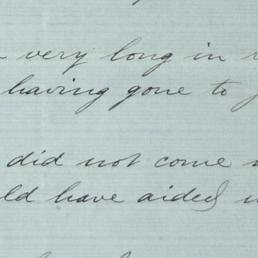 very long in
having gone to
did not come
ld have aided